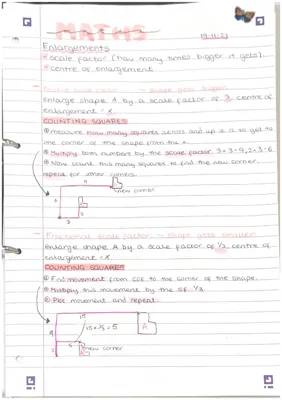 MATHS
19.11.21
Enlargements
scale factor (how many times bigger it gets).
centre of enlargement
Enlarge shape A by a scale factor of 3, centre of
enlargement = x.
COUNTING SQUARES
measure how many squares across and up it is to get to
the corner of the shape from the x.
Multiply both numbers by the scale factor. 3×3=9, 2×3=6
Now count this many squares to find the new corner.
repeat for other corners.
new corner
Fractional scale factor - shape gets smaller
enlarge shape A by a scale factor of 1/3, centre of
enlargement = x
COUNTING SQUARES
Find movement from COE to the corner of the shape.
Multiply this movement by the SF. 1/3.
Plot movement and repeat.
15
A
15 × 1/3 = 5
5
new corner